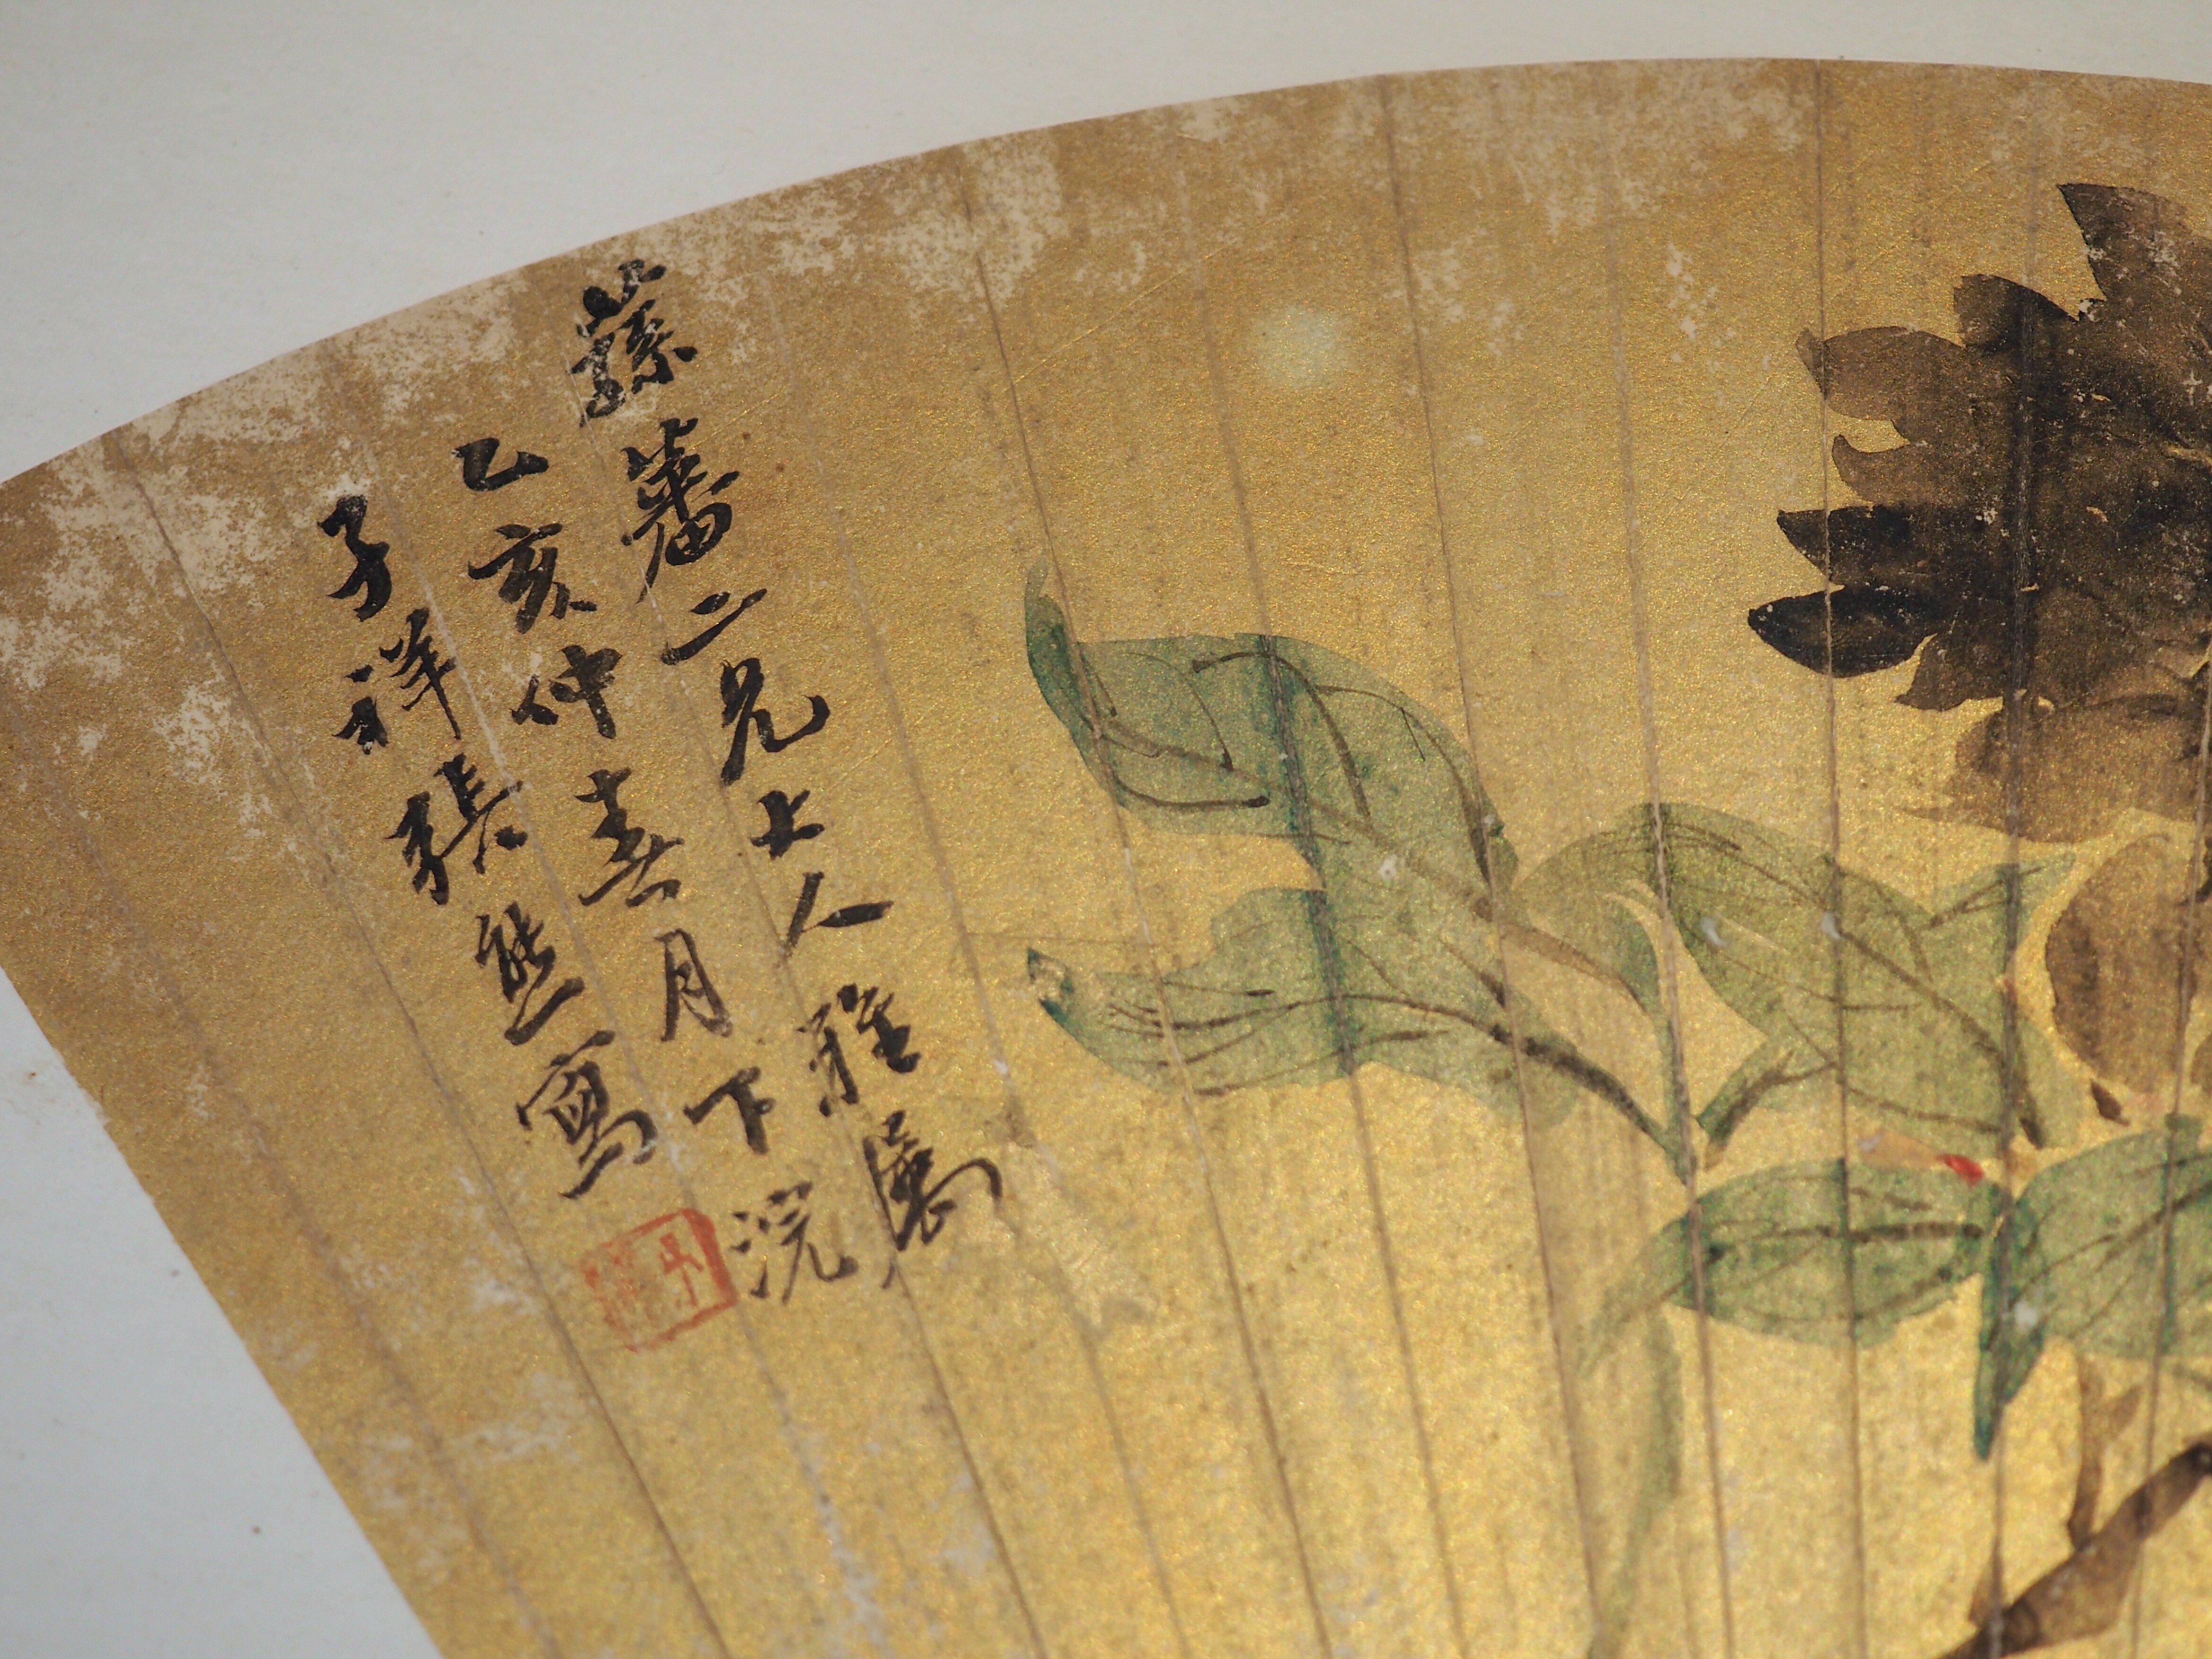 蓀藩二兄大人雅屬
乙亥仲春月下浣
子祥張熊寫